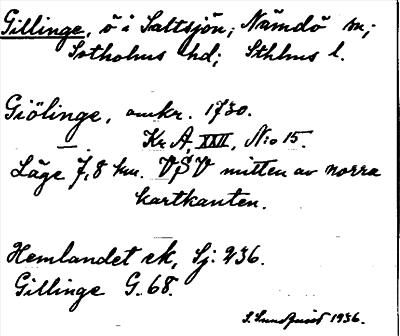 Gillinge, ö i Saltsjön; Nämdö sn;
Sotholms hd; Sthlms l.
Giölinge, omkr. 1730.
— Kr. A, XXII, N:o 15.
Läge 7,8 km. VSV mitten av norra
kartkanten.
Hemlandet ek, Sj. 236.
Gillinge G. 68.
S. Lundqvist 1936.